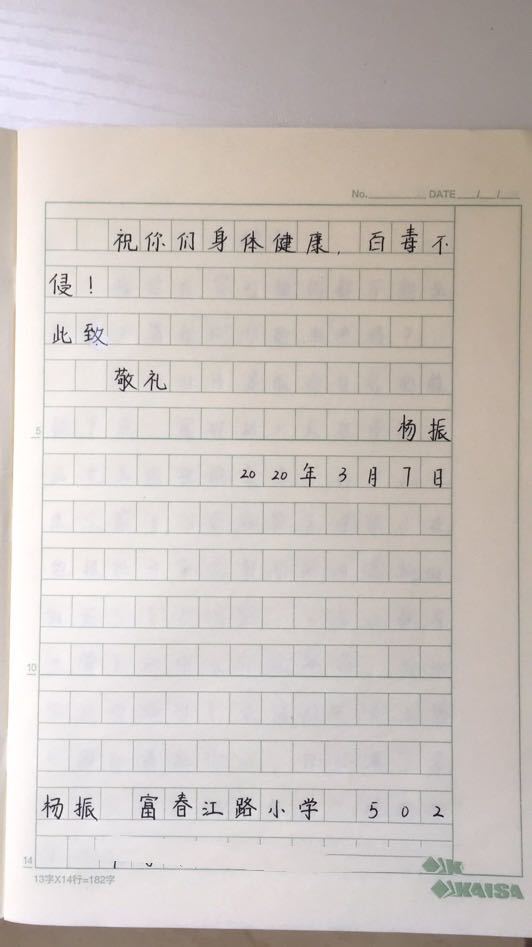 No. DATE / /
祝你们身体健康，百毒不
侵！
此致
敬礼
5
杨振
2020年3月7日
10
杨振 富春江路小学 502
14
13字X14行=182字
KAISA